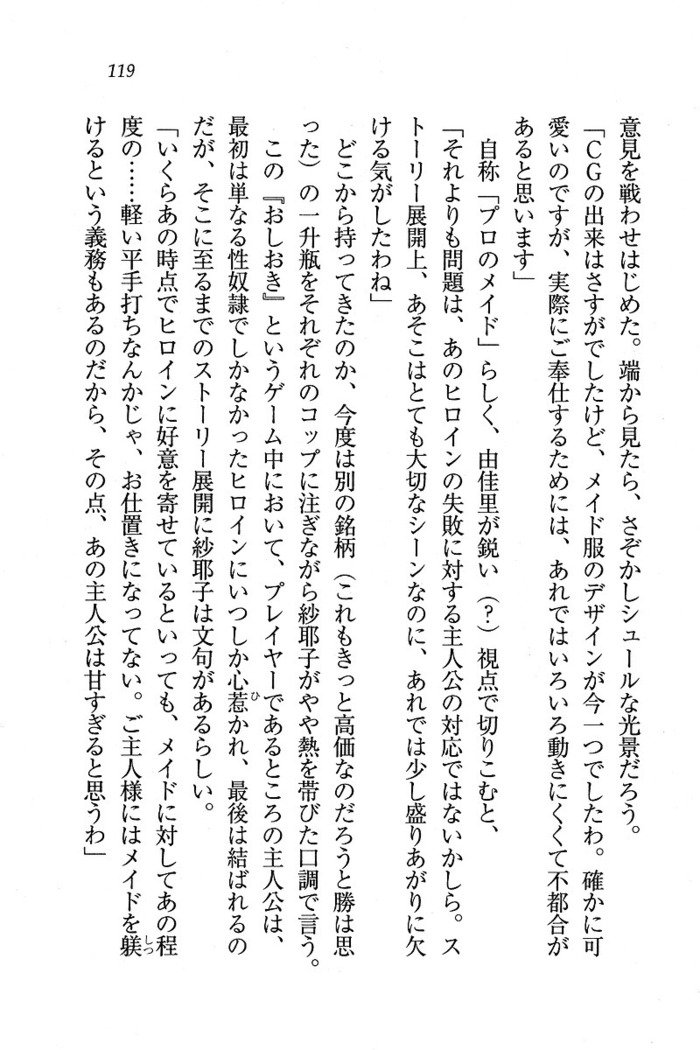 119
意見を戦わせはじめた。端から見たら、さぞかしシュールな光景だろう。
「ＣＧの出来はさすがでしたけど、メイド服のデザインが今一つでしたわ。確かに可
愛いのですが、実際にご奉仕するためには、あれではいろいろ動きにくくて不都合が
あると思います」
自称「プロのメイド」らしく、由佳里が鋭い（？）視点で切りこむと、
「それよりも問題は、あのヒロインの失敗に対する主人公の対応ではないかしら。ス
トーリー展開上、あそこはとても大切なシーンなのに、あれでは少し盛りあがりに欠
ける気がしたわね」
どこから持ってきたのか、今度は別の銘柄（これもきっと高価なのだろうと勝は思
った）の一升瓶をそれぞれのコップに注ぎながら紗耶子がやや熱を帯びた口調で言う。
この『おしおき』というゲーム中において、プレイヤーであるところの主人公は、
最初は単なる性奴隷でしかなかったヒロインにいつしか心惹かれ、最後は結ばれるの
ひ
だが、そこに至るまでのストーリー展開に紗耶子は文句があるらしい。
「いくらあの時点でヒロインに好意を寄せているといっても、メイドに対してあの程
度の……軽い平手打ちなんかじゃ、お仕置きになってない。ご主人様にはメイドを躾
しつ
けるという義務もあるのだから、その点、あの主人公は甘すぎると思うわ」